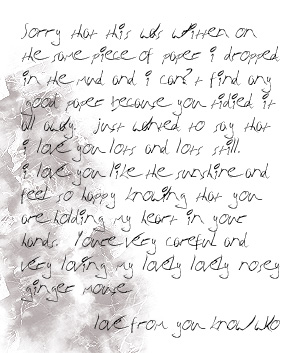 Sorry that this was written on
the same piece of paper i dropped
in the mud and i can't find any
good paper because you tidied it
all away. just wanted to say that
i love you lots and lots still.
i love you like the sunshine and
feel so happy knowing that you
are holding my heart in your
hands. You're very careful and
very loving my lovely lovely nosey
ginger mouse
love from you know who